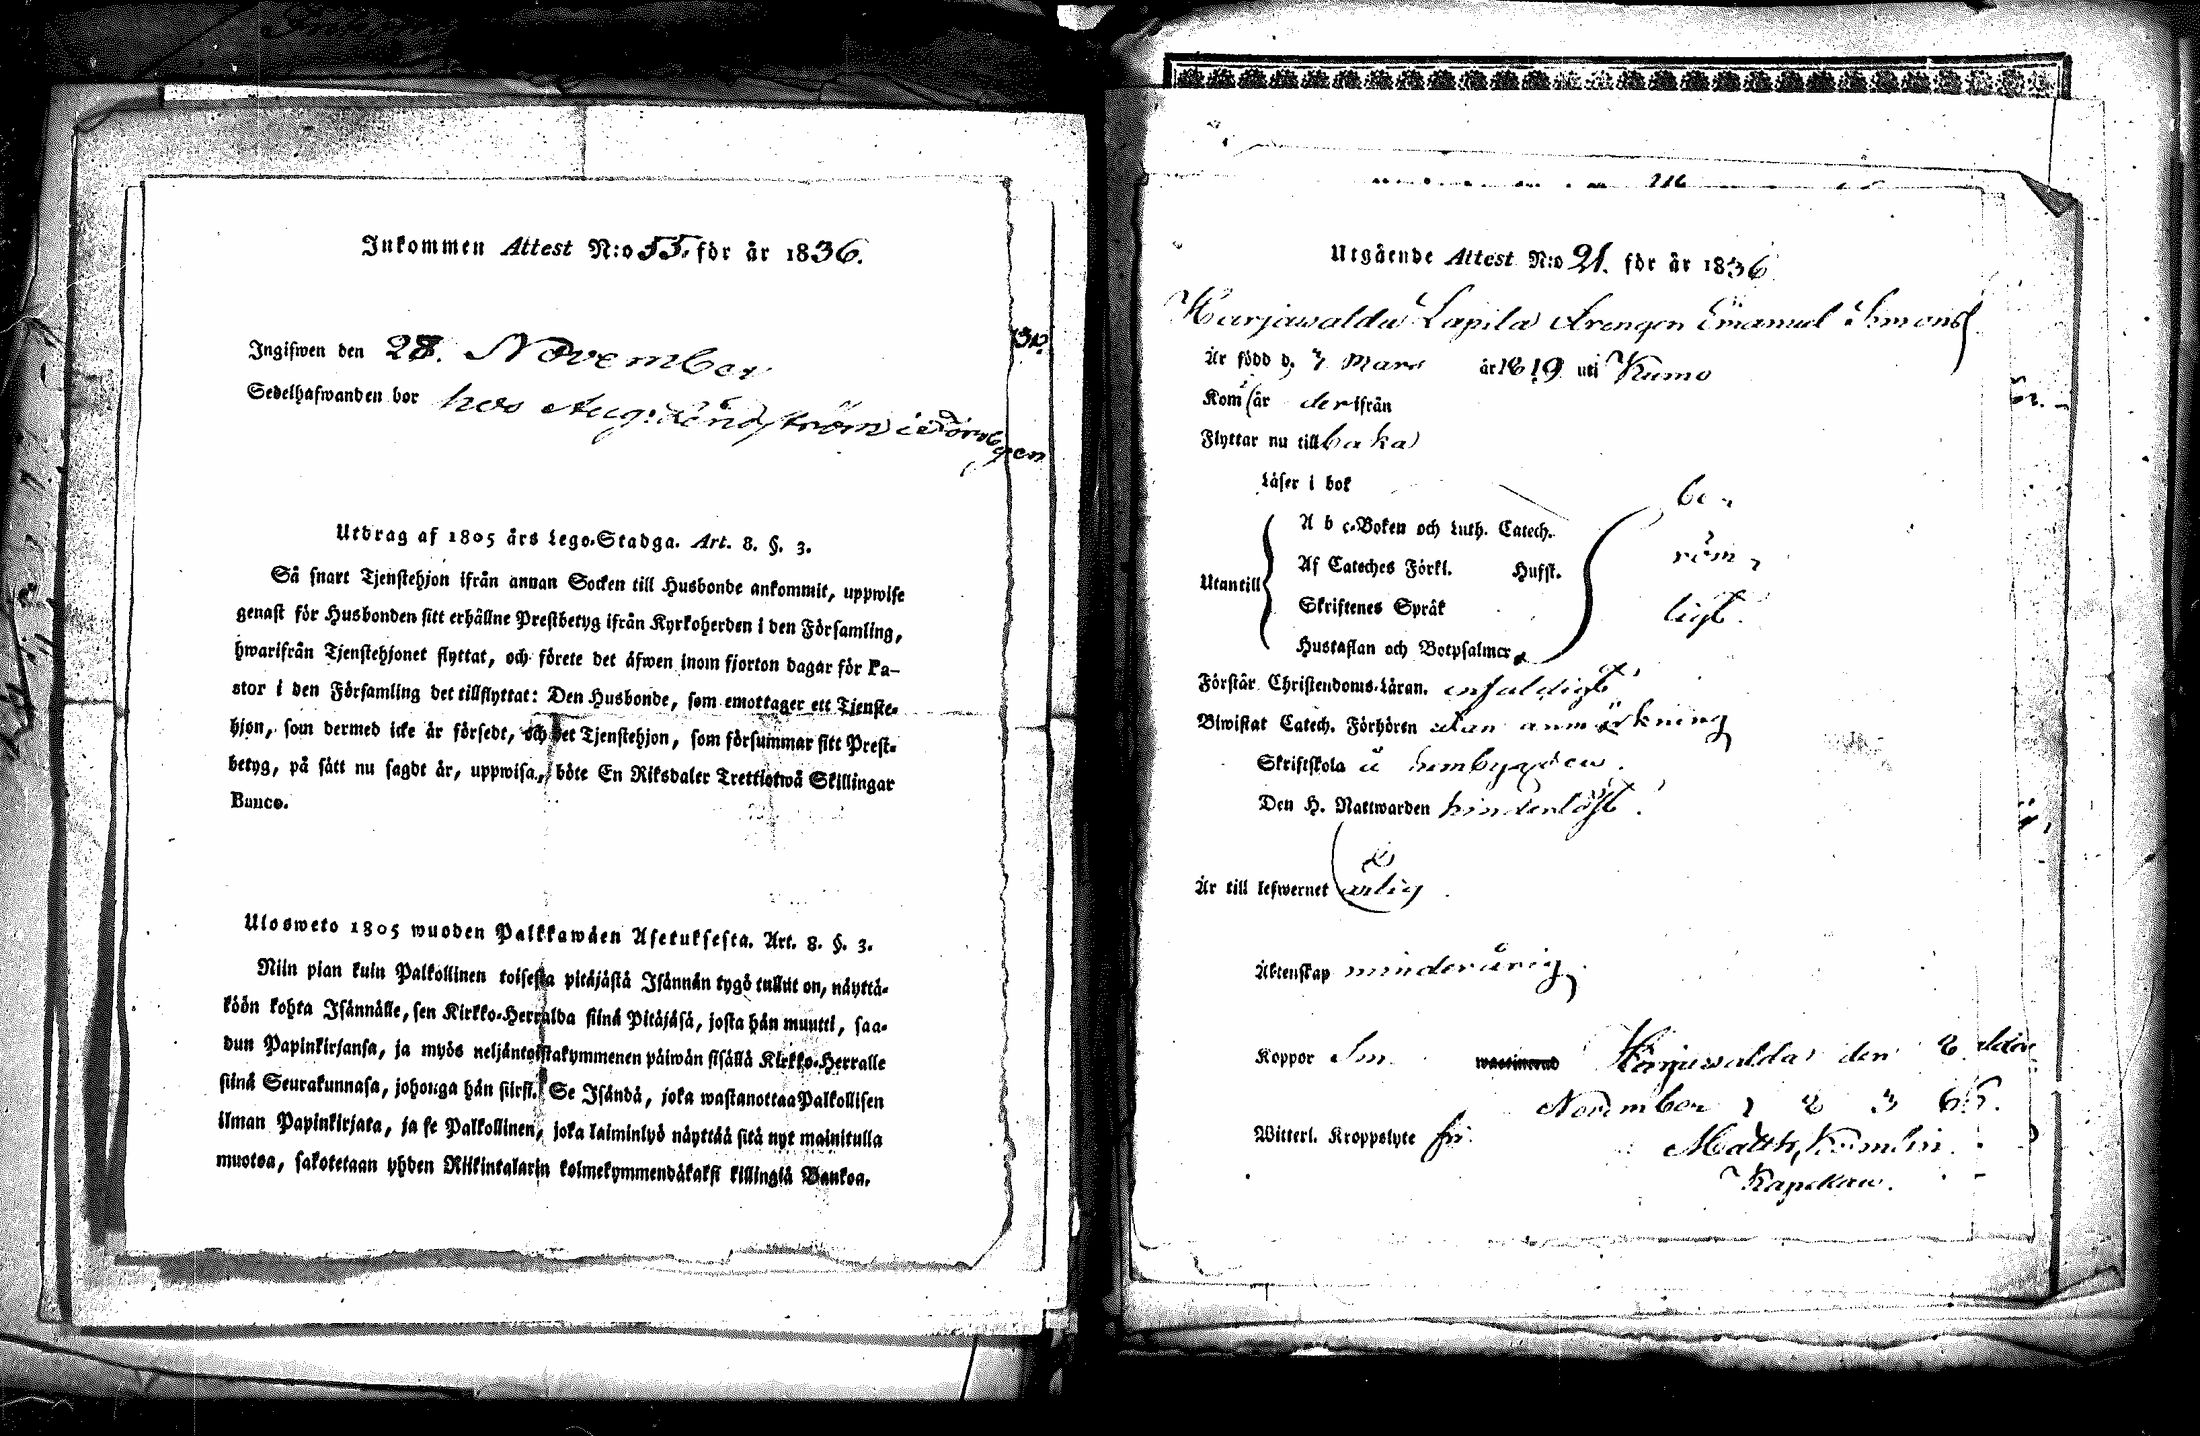 Inkommen Attest N:o 55. för år 1836.
Ingifwen den 28. November
Sedelhafwanden bor hos Aug: Lindström i
Utdrag af 1805 års Lego-Stadga. Art. 8. §. 3.
Så snart Tjenstehjon ifrån annan Socken till Husbonde ankommit, uppwise
genast för Husbonden sitt erhållne Prestbetyg ifrån Kyrkoherden i den Församling,
hwarifrån Tjenstehjonet flyttat, och förete det äfwen inom fjorton dagar för Pa-
stor i den Församling det tillflyttat: Den Husbonde, som emottager ett Tjenste-
hjon, som dermed icke är försedt, och det Tjenstehjon, som försummar sitt Prest-
betyg, på sätt nu sagdt är, uppwisa, böte En Riksdaler Trettiotwå Skillingar
Banco.
Ulosweto 1805 wuoden Palkkawäen Asetuksesta. Art. 8. §. 3.
Niin pian kuin Palkollinen toisesta pitäjästä Isännän tygö tullut on, näyttä-
köön kohta Isännälle, sen Kirkko-Herralda siinä Pitäjäsä, josta hän muutti, saa-
dun Papinkirjansa, ja myös neljäntoistakymmenen päiwän sisällä Kirkko-Herralle
siinä Seurakunnasa, johonga hän siirsi. Se Isändä, joka wastanottaa Palkollisen
ilman Papinkirjata, ja se Palkollinen, joka laiminlyö näyttää sitä nyt mainitulla
muotoa, sakotetaan yhden Riikintalarin kolmekymmendäkaksi killingiä Bankoa.
Utgående Attest N:o 21. för år 1836
Harjawalda Lapila Drengen Emanuel Simonss
Är född d, 7 Mars år 1819 uti Kumo
Kom är derifrån
Flyttar nu tillbaka
Läser i bok be-
A b c-Boken och Luth. Catech.
Af Cateches Förkl. Husf. röm-
Utantill
Skriftenes Språk ligt.
Hustaflan och Botpsalmer
Förstår Christendoms-Läran. enfaldigt
Biwistat Catech. Förhören utan anmärkning
Skriftskola i hembygden.
Den H. Nattwarden hinderlöst.
Är till lefwernet ärlig
Äktenskap minderårig
Koppor Sm. Harjawalda den 8
November 1836.
Witterl. Kroppslyte fri. Matth, Komlin.
Kapellan.